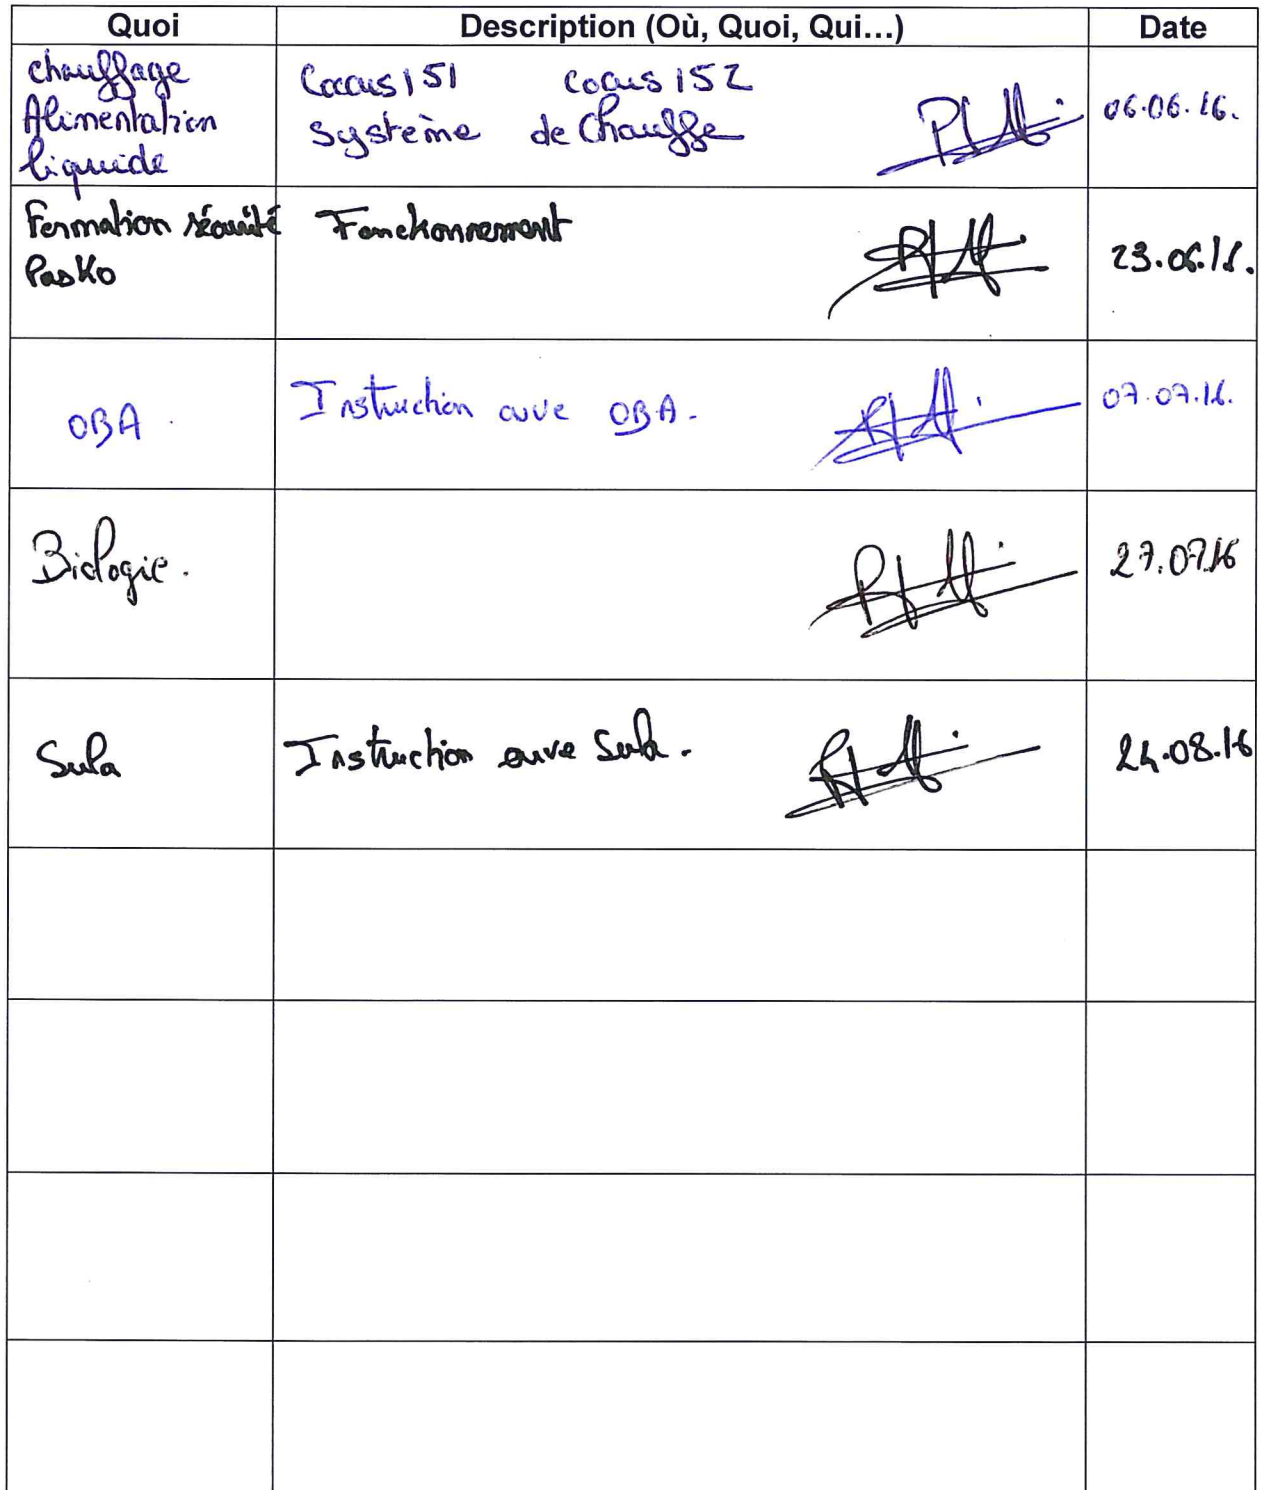 Quoi Description (Où, Quoi, Qui...) Date
chauffage
Alimentation
liquide
Cocus 151 cocus 152
système de Chauffe
06.06.16.
Formation sécurité
Pasko
Fonctionnement
23.06.16.
OBA
Instruction cuve OBA.
07.07.16.
Biologie.
27.07.16
Sula
Instruction cuve Sula.
24.08.16